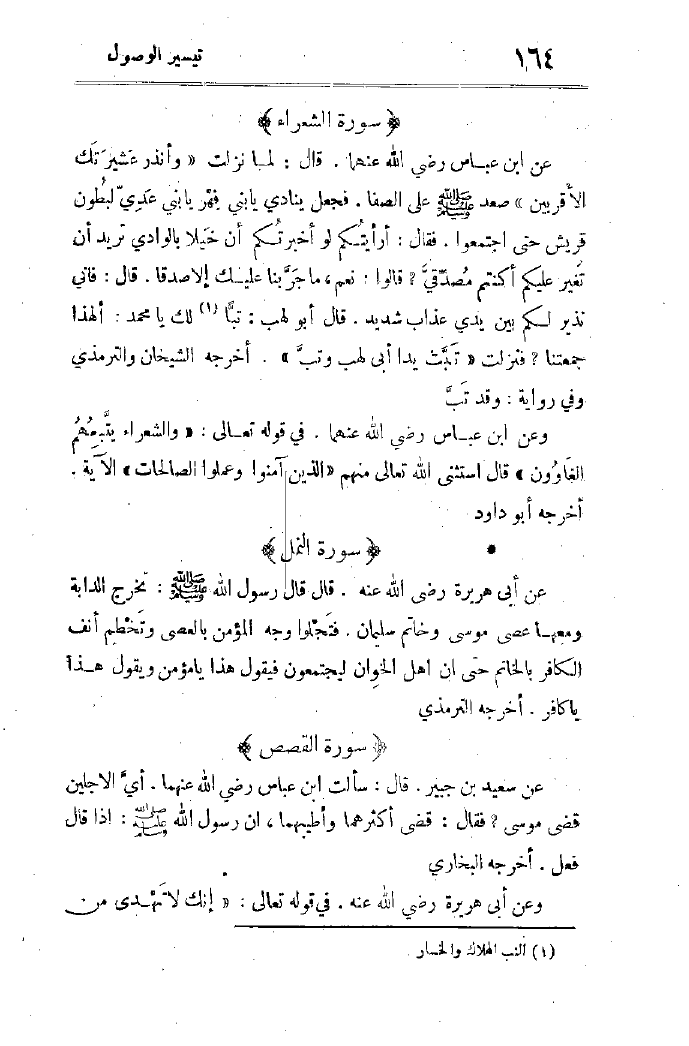 ١٦٤ تيسير الوصول
﴿ سورة الشعراء ﴾
عن ابن عباس رضي الله عنهما . قال : لما نزلت « وأنذر عَشيرَتَك
الأقربين » صعد ﷺ على الصفا . فجعل ينادي يابني فِهْر يابني عَدِيّ لبُطون
قريش حتى اجتمعوا . فقال : أرأيتُكم لو أخبرتُكم أن خَيلا بالوادي تريد أن
تُغير عليكم أكنتم مُصدّقيَّ ? قالوا : نعم، ماجَرَّبنا عليك إلاصدقا . قال : فاني
نذير لكم بين يدي عذاب شديد . قال أبو لهب : تبًّا (١) لك يا محمد : ألهذا
جمعتنا ? فنزلت « تَبَّتْ يدا أبى لهب وتبَّ » . أخرجه الشيخان والترمذي
وفي رواية : وقد تَبَّ
وعن ابن عباس رضي الله عنهما . في قوله تعالى : « والشعراء يتَّبعُهُم
الغَاوُون » قال استثنى الله تعالى منهم «الذين آمنوا وعملوا الصالحات» الآية .
أخرجه أبو داود
﴿ سورة النمل ﴾
عن أبى هريرة رضى الله عنه . قال قال رسول الله ﷺ : تخرج الدابة
ومعها عصى موسى وخاتم سليمان . فتَجْلوا وجه المؤمن بالعصى وتَخْطِم أنف
الكافر بالخاتم حتى ان اهل الخِوان ليجتمعون فيقول هذا يامؤمن ويقول هذا
ياكافر . أخرجه الترمذي
﴿ سورة القصص ﴾
عن سعيد بن جبير . قال : سألت ابن عباس رضي الله عنهما . أيَّ الاجلين
قضى موسى ? فقال : قضى أكثرهما وأطيبهما ، ان رسول الله ﷺ : اذا قال
فعل . أخرجه البخاري
وعن أبى هريرة رضي الله عنه . في قوله تعالى : « إنك لا تَهْدى من
(١) ألتب الهلاك والخسار